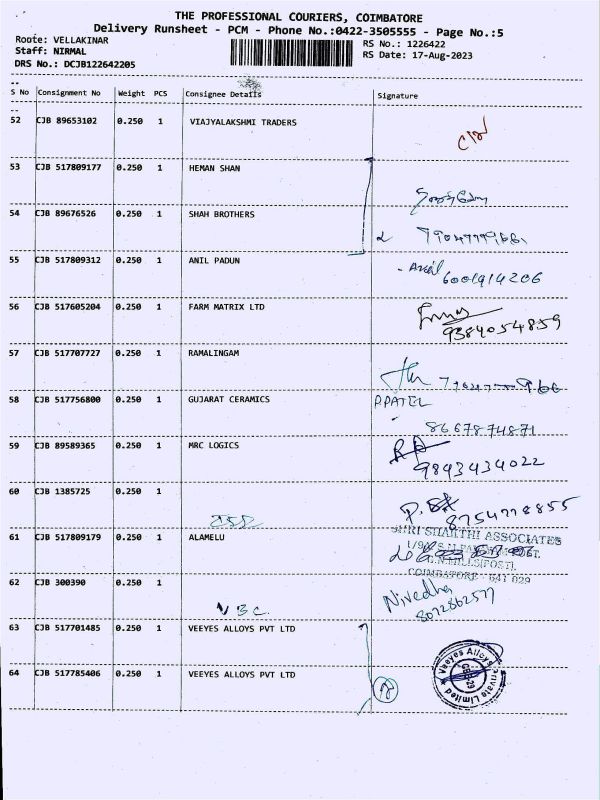 THE PROFESSIONAL COURIERS, COIMBATORE
Delivery Runsheet - PCM - Phone No.:0422-3505555 - Page No.:5
Route: VELLAKINAR
RS No.: 1226422
Staff: NIRMAL
RS Date: 17-Aug-2023
DRS No.: DCJB122642205
S No Consignment No Weight PCS Consignee Details Signature
52 CJB 89653102 0.250 1 VIAJYALAKSHMI TRADERS
53 CJB 517809177 0.250 1 HEMAN SHAN
54 CJB 89676526 0.250 1 SHAH BROTHERS
55 CJB 517809312 0.250 1 ANIL PADUN
Anil
6001914206
56 CJB 517605204 0.250 1 FARM MATRIX LTD
9384054859
57 CJB 517707727 0.250 1 RAMALINGAM
58 CJB 517756800 0.250 1 GUJARAT CERAMICS P.PATEL
8667874871
59 CJB 89589365 0.250 1 MRC LOGICS
9843434022
60 CJB 1385725 0.250 1
8754778855
61 CJB 517809179 0.250 1 ALAMELU
SHRI SHAKTHI ASSOCIATES
COIMBATORE - 641 029
62 CJB 300390 0.250 1
Nivedha
8072862577
VBC.
63 CJB 517701485 0.250 1 VEEYES ALLOYS PVT LTD
64 CJB 517785406 0.250 1 VEEYES ALLOYS PVT LTD
Veeyes Alloys Private Limited
CBE-29